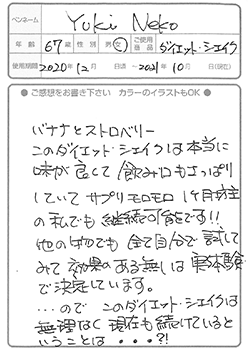 ペンネーム Yuki Neko
年齢 67才 性別 男・女 ご使用商品 ダイエット・シェイク
使用期間 2020年12月 日頃 ～2021年10月 日(現在)
● ご感想をお書き下さい カラーのイラストもOK ●
バナナとストロベリー
このダイエット・シェイクは本当に
味が良くて 飲み口もさっぱり
していて サプリモロモロ 1ヶ月
の私でも 継続可能です!!
他の物でも 全て自分で試して
みて 効果のある無しは 実体験
で決定しています。
...ので このダイエット・シェイクは
無理なく 現在も続けていると
いうことは・・・?!